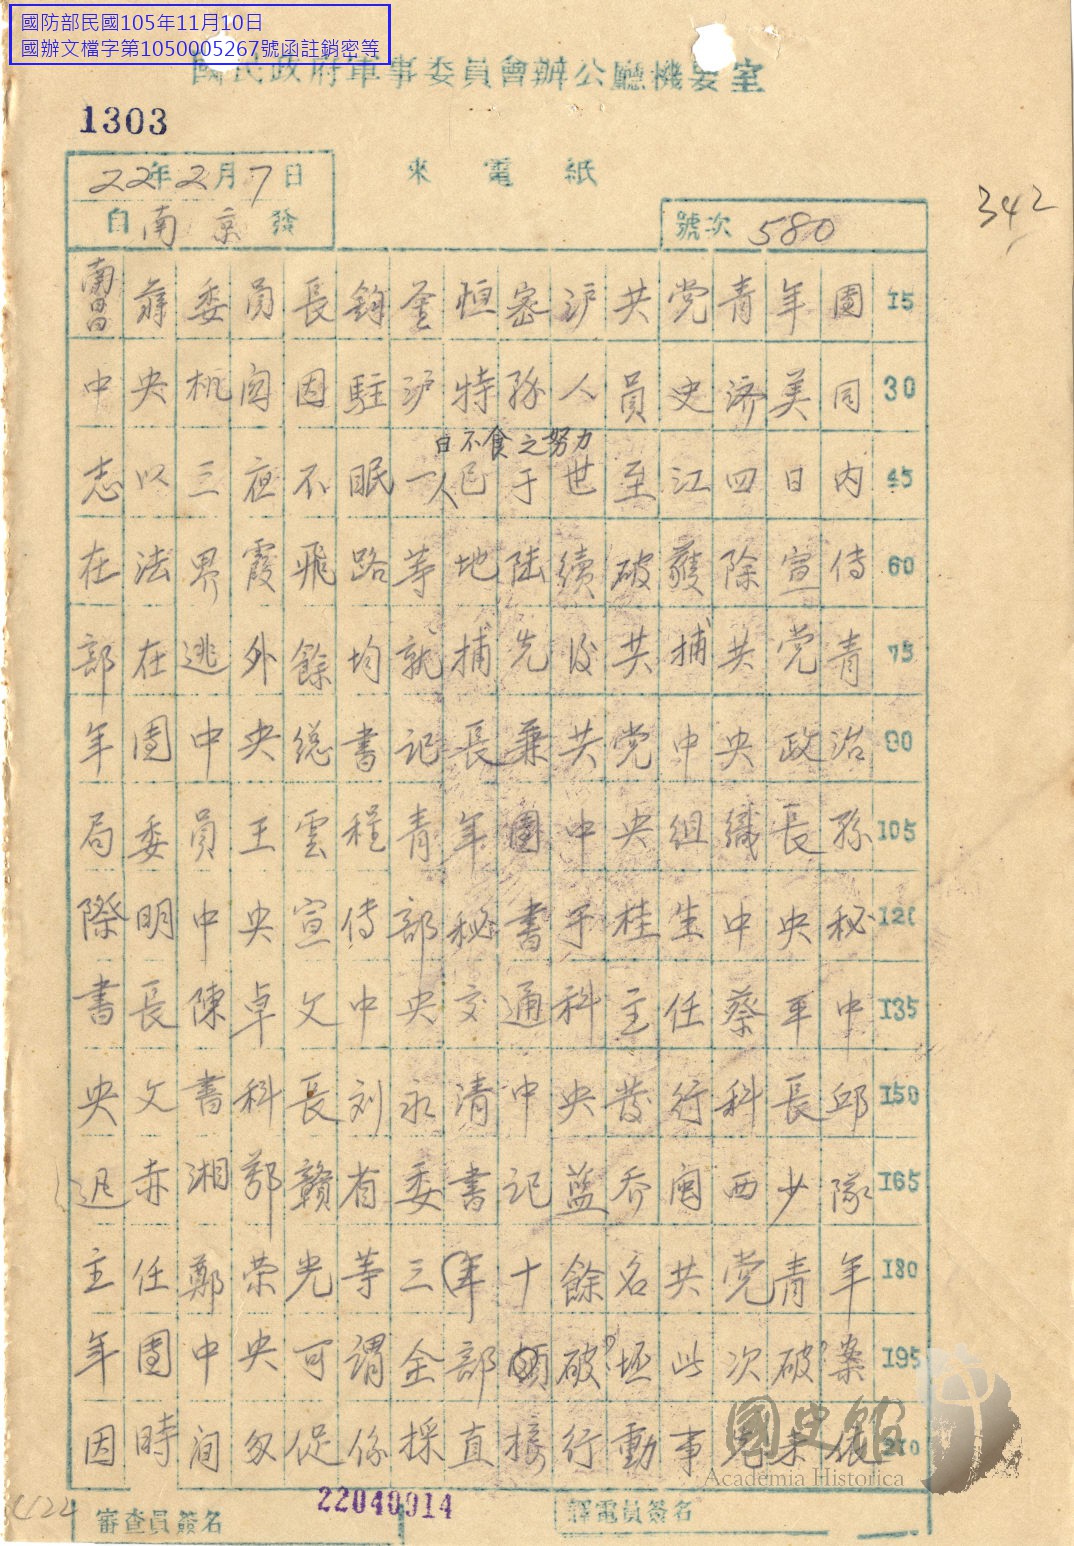 國防部民國105年11月10日
國辦文檔字第1050005267號函註銷密等
國民政府軍事委員會辦公廳機要室
1303
22年2月7日
來電紙
342
自南京發
號次 580
南昌蔣委員長鈞鉴恒密沪共党青年團 15
中央机関因駐沪特務人員史济美同 30
日不食之努力
志以三夜不眠一人已于世至江四日内 45
在法界霞飛路等地陸續破獲除宣傳 60
部在逃外餘均就捕先后共捕共党青 75
年團中央總書記長兼共党中央政治 90
局委員王雲程青年團中央組織長孫 105
際明中央宣傳部秘書于桂生中央秘 120
書長陳卓文中央交通科主任蔡平中 135
央文書科長刘永清中央發行科長邱 150
迟赤湘鄂贛省委書記藍乔閩西少隊 165
主任鄭荣光等三年十餘名共党青年 180
年團中央可謂全部破坯此次破案 195
因時间匆促係採直接行動事先未 210
國史館
Academia Historica
1424
審查員簽名
22040014
譯電員簽名